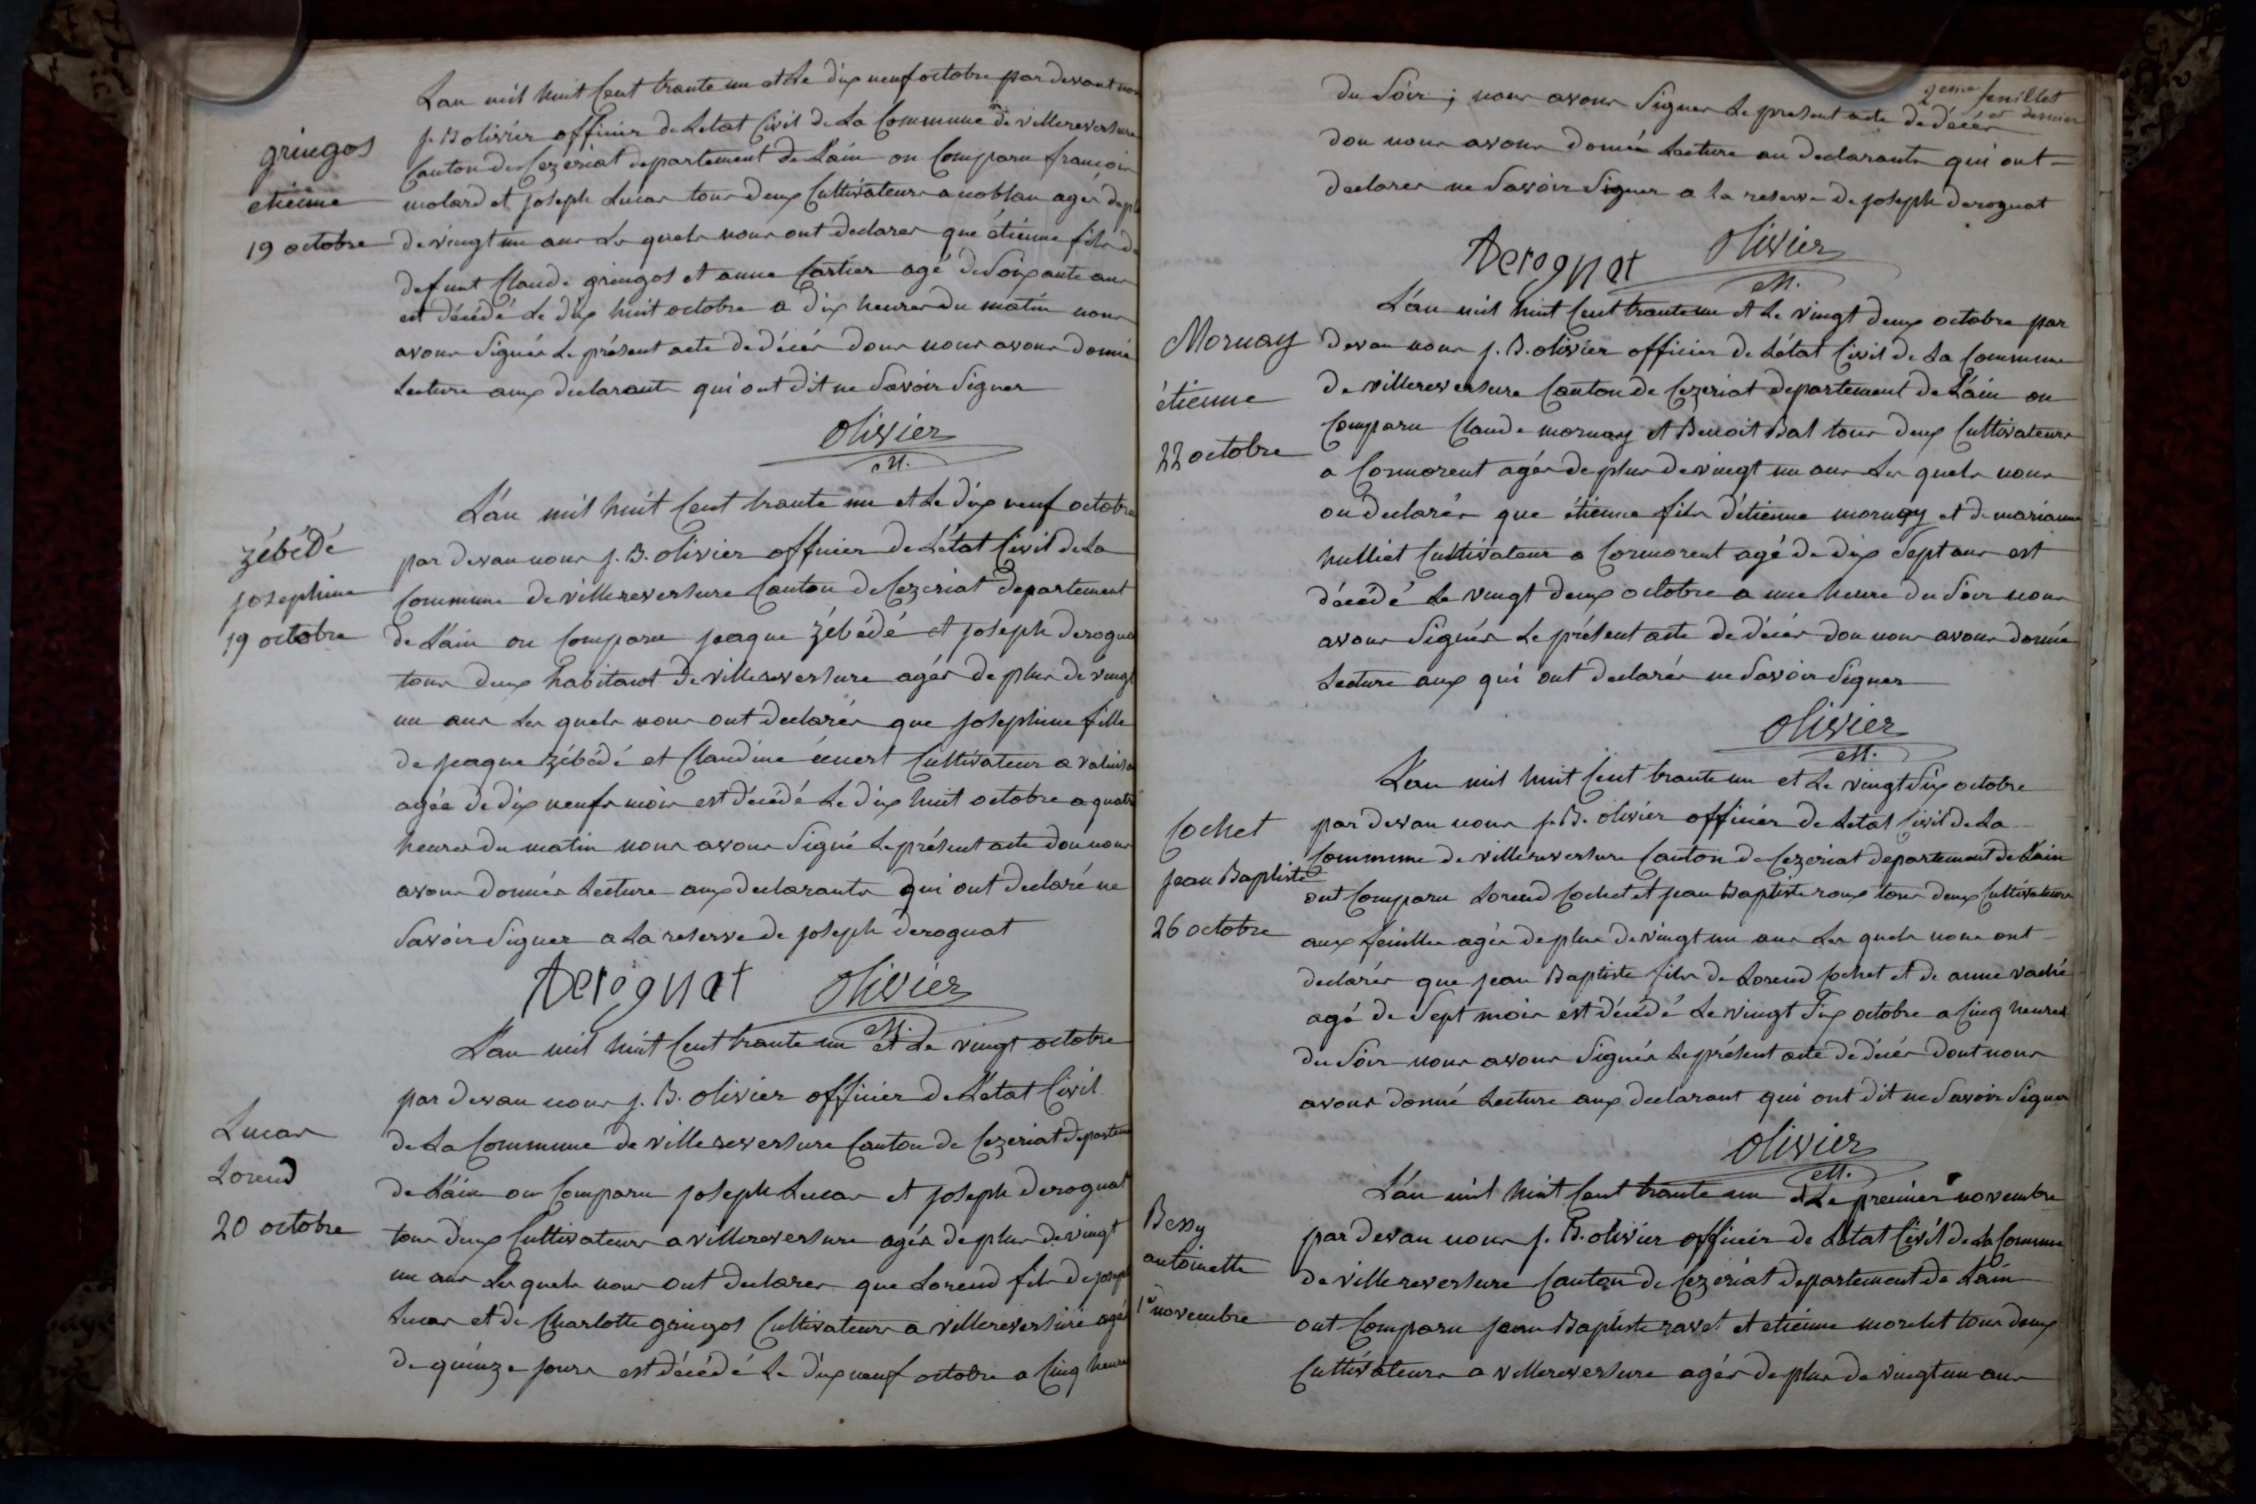 Lan mil huit Cent trante un et Le dix neuf octobre par devant nou
gringos
etiénne
19 octobre
J. B olivier officier de Letat Civil de La Commune de villereversure
Canton de Cezeriat departement de L'ain on Comparu françois
molard et joseph Lucas tous deux Cultivateurs a noblan agés de pl
de vingt un ans Les quels nous ont declares que étienne fils de
defunt Claude gringos et anne Cartier agé de Soixante ans
est décédé Le dix huit octobre a dix heures du matin nous
avons Signés Le présent acte de décés dons nous avons donnés
Lecture aux declarant qui ont dit ne Savoir Signer
olivier
M.
zébédé
josephine
19 octobre
L'an mil huit Cent trante un et Le dix neuf octobre
par devan nous J. B. olivier officier de L'état Civil de La
Commune de villereversure Canton de Cezeriat departement
de L'ain on Comparu jeaque zébédé et joseph derogna
tous deux habitant de villereversure agés de plus de vingt
un ans Les quels nous ont declarés que josephine fille
de jeaque zébédé et Claudine Cultivateur a
agée de dix neufs mois est décédé Le dix huit octobre a quatre
heures du matin nous avons Signé Le présent acte don nous
avons donnés Lecture aux declarants qui ont declaré ne
Savoir Signer a La reserve de joseph derognat
derognat olivier
M.
Lucas
Lorend
20 octobre
L'an mil huit Cent trante un et Le vingt octobre
par devan nous J. B. olivier officier de L'etat Civil
de La Commune de villereversure Canton de Cezeriat departeme
de L'ain on Comparu joseph Lucas et joseph derognat
tous deux Cultivateurs a villereversure agés de plus de vingt
un ans Les quels nous ont declares que Lorend fils de joseph
Lucas et de Charlotte gringos Cultivateurs a villereversure agé
de quinze jours est décédé Le dix neuf octobre a Cinq heures
2eme feuillet
et dernier
du Soir ; nous avons Signer Le present acte de décés
don nous avons donnés Lecture au declarants qui ont
declares ne Savoir Signer a la reserve de joseph derognat
derognat olivier
M.
Mornay
étienne
22 octobre
L'an mil huit Cent trante un et Le vingt deux octobre par
devan nous J. B. olivier officier de L'état Civil de La Commune
de villereversure Canton de Cezeriat departement de L'ain on
Comparu Claude mornay et Benoit Bal tous deux Cultivateurs
a Cormorent agés de plus de vingt un ans Les quels nous
on declarés que étienne fils d'étienne mornay et de marianne
hulliet Cultivateur a Cormorent agé de dix Sept ans est
décédé Le vingt deux octobre a une heure du Soir nous
avons Signés Le présent acte de décés don nous avons donné
Lecture aux qui ont declarés ne Savoir Signer
olivier
M.
Cochet
jean Baptiste
26 octobre
L'an mil huit Cent trante un et Le vingt Six octobre
par devan nous J. B. olivier officier de Letat Civil de La
Commune de villereversure Canton de Cezeriat departement de L'ain
ont Comparu Lorend Cochet et jean Baptiste roux tous deux Cultivateurs
aux agés de plus de vingt un ans Les quels nous ont
declarés que jean Baptiste fils de Lorend Cochet et de anne vaché
agé de Sept mois est décédé Le vingt Six octobre a Cinq heures
du Soir nous avons Signés Le présent acte de décés dont nous
avons donné Lecture aux declarant qui ont dit ne Savoir Signer
olivier
M.
Bessy
antoinette
1er novembre
L'an mil huit Cent trante un et Le premier novembre
par devan nous J. B. olivier officier de L'etat Civil de La Commune
de villereversure Canton de Cezeriat departement de L'ain
ont Comparu jean Baptiste ravet et etienne morelet tous deux
Cultivateurs a villereversure agés de plus de vingt un ans